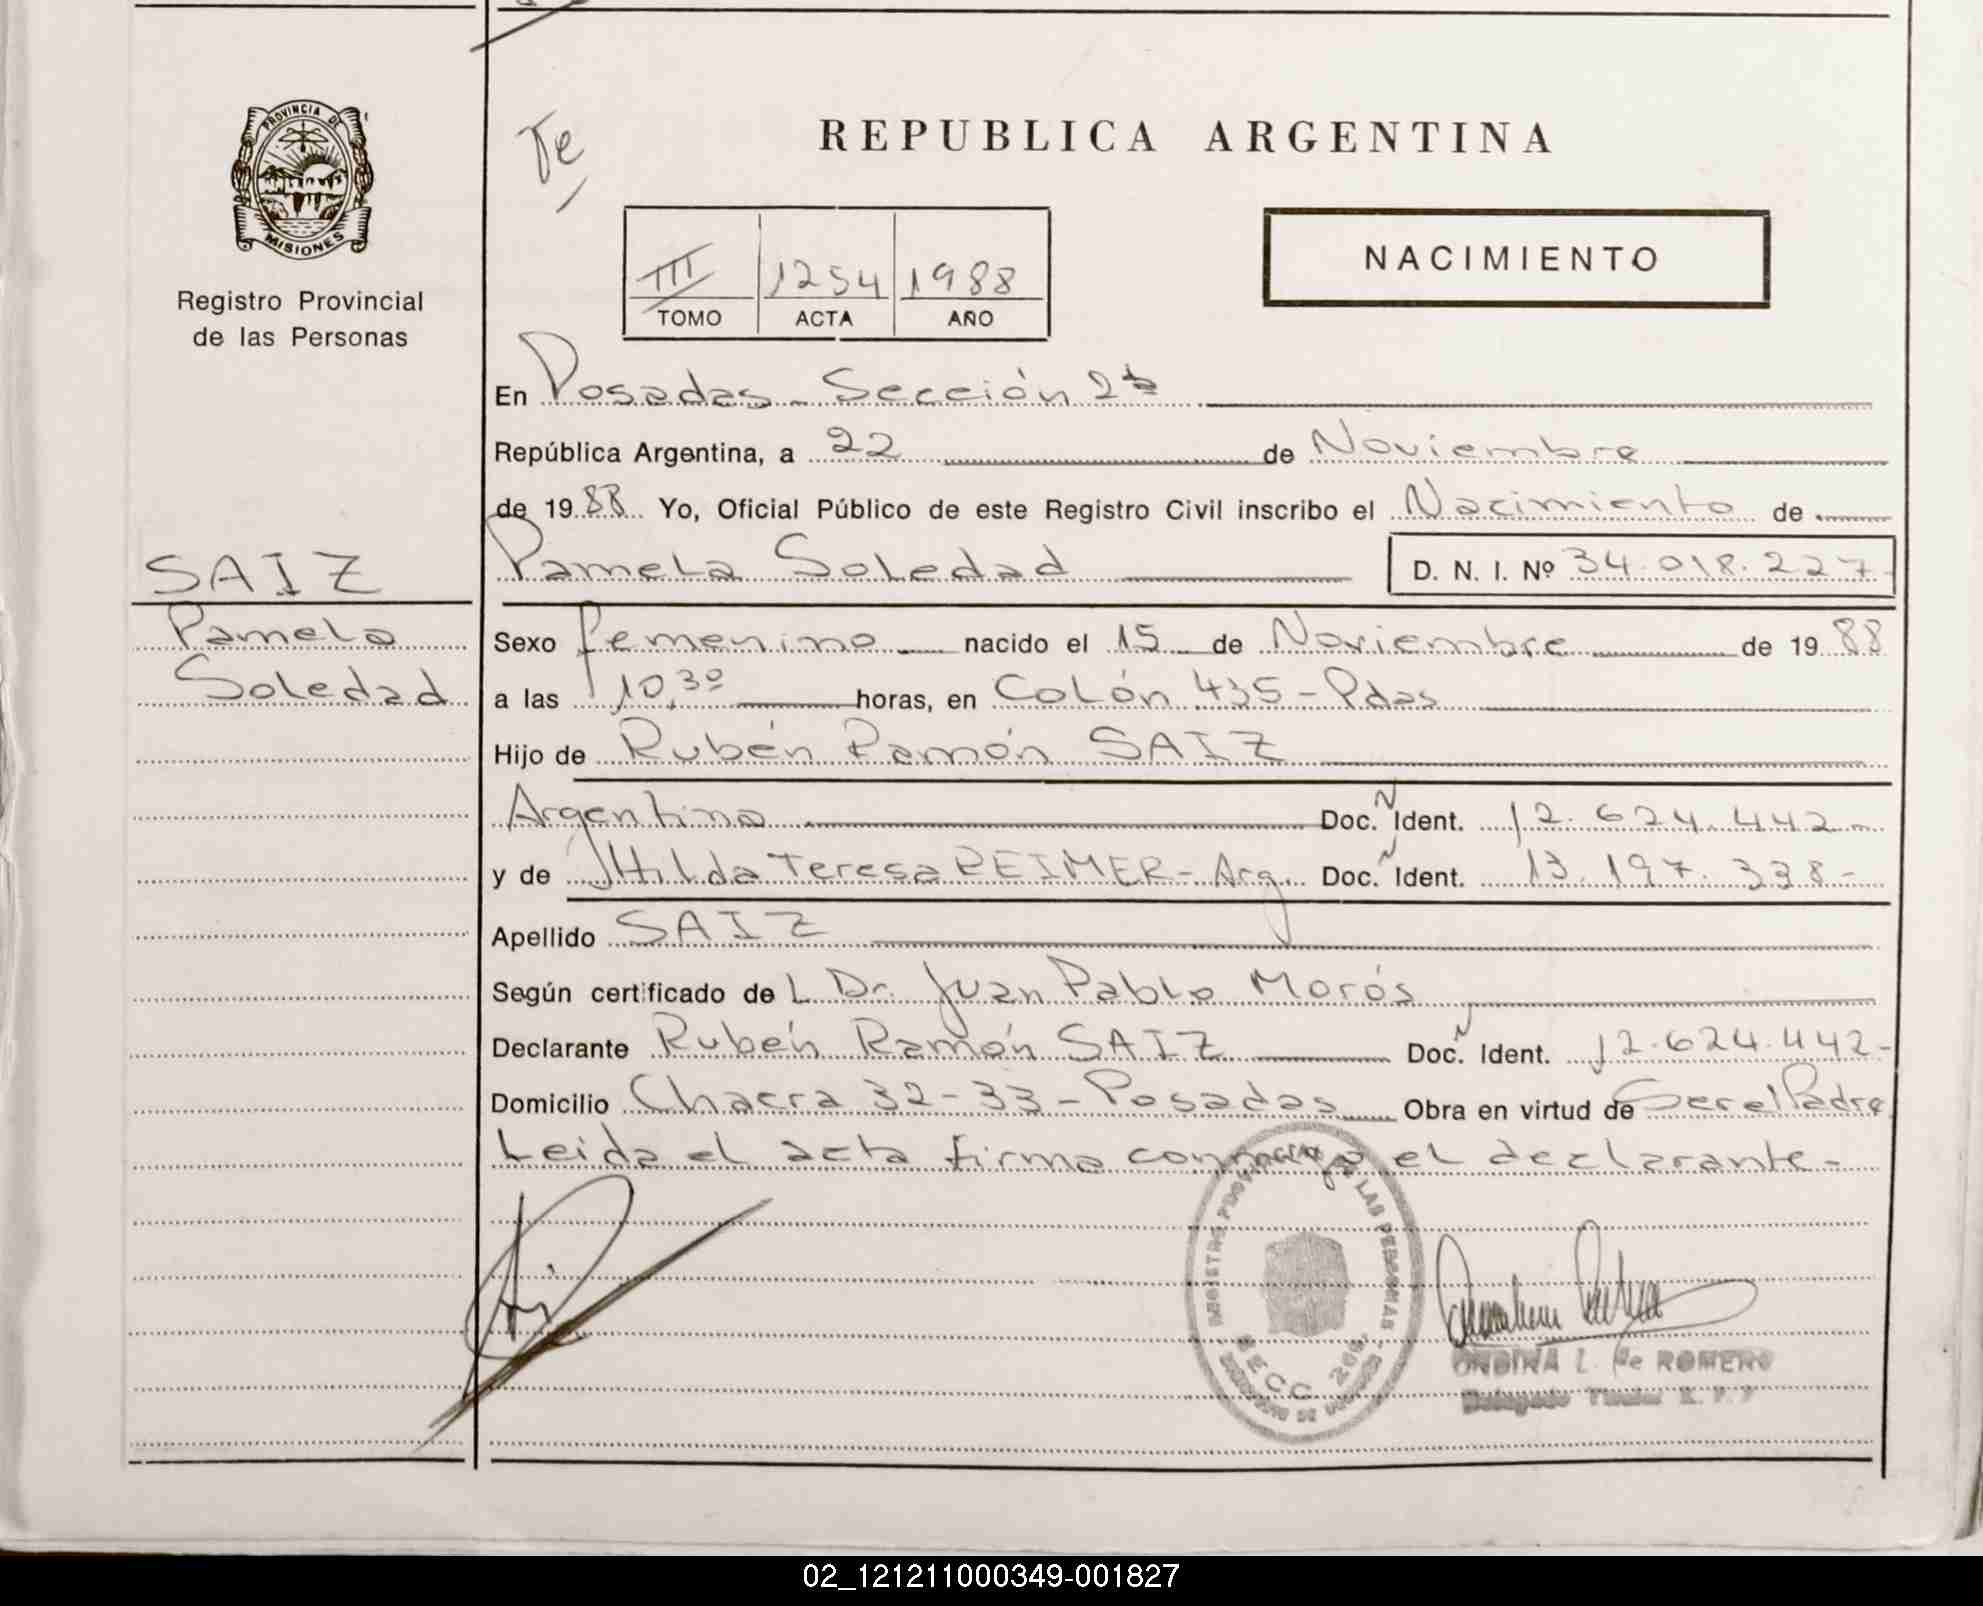 PROVINCIA DE
MISIONES
Registro Provincial
de las Personas
SAIZ
Pamela
Soledad
Te
REPUBLICA ARGENTINA
III 1254 1988
TOMO ACTA AÑO
NACIMIENTO
En Posadas - Sección 2ª
República Argentina, a 22 de Noviembre
de 1988 Yo, Oficial Público de este Registro Civil inscribo el Nacimiento de
Pamela Soledad D. N. I. Nº 34.018.227-
Sexo femenino nacido el 15 de Noviembre de 1988
a las 10,30 horas, en Colón 435 - Pdas
Hijo de Rubén Ramón SAIZ
Argentino Doc. Ident. 12.624.442-
y de Hilda Teresa REIMER - Arg. Doc. Ident. 13.197.338-
Apellido SAIZ
Según certificado del Dr. Juan Pablo Morós
Declarante Rubén Ramón SAIZ Doc. Ident. 12.624.442-
Domicilio Chacra 32-33 - Posadas Obra en virtud de Ser el Padre
Leida el acta firma conmigo el declarante-
DE LAS PERSONAS
SECC 2da
ONDINA L. de ROMERO
02_121211000349-001827